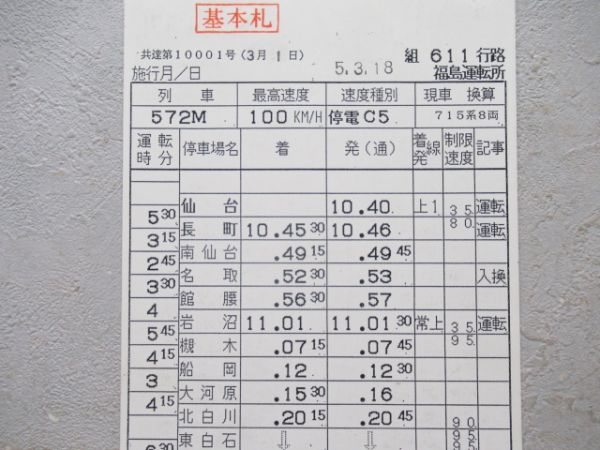 基本札
共達第10001号(3月1日)
組 611行路
施行月/日 5.3.18 福島運転所
列 車 最高速度 速度種別 現車 換算
572M 100KM/H 停電C5 715系8両
運転時分 停車場名 着 発(通) 着線発 制限速度 記事
仙台 10.40. 上1 35 運転
5 30 80
長町 10.45 30 10.46 運転
3 15
南仙台 .49 15 .49 45
2 45
名取 .52 30 .53 入換
3 30
館腰 .56 30 .57
4
岩沼 11.01. 11.01 30 常上 35 運転
5 45 95
槻木 .07 15 .07 45
4 15
船岡 .12 .12 30
3
大河原 .15 30 .16
4 15
北白川 .20 15 .20 45
90
東白石 ⇩ ⇩ 95
6 30 95